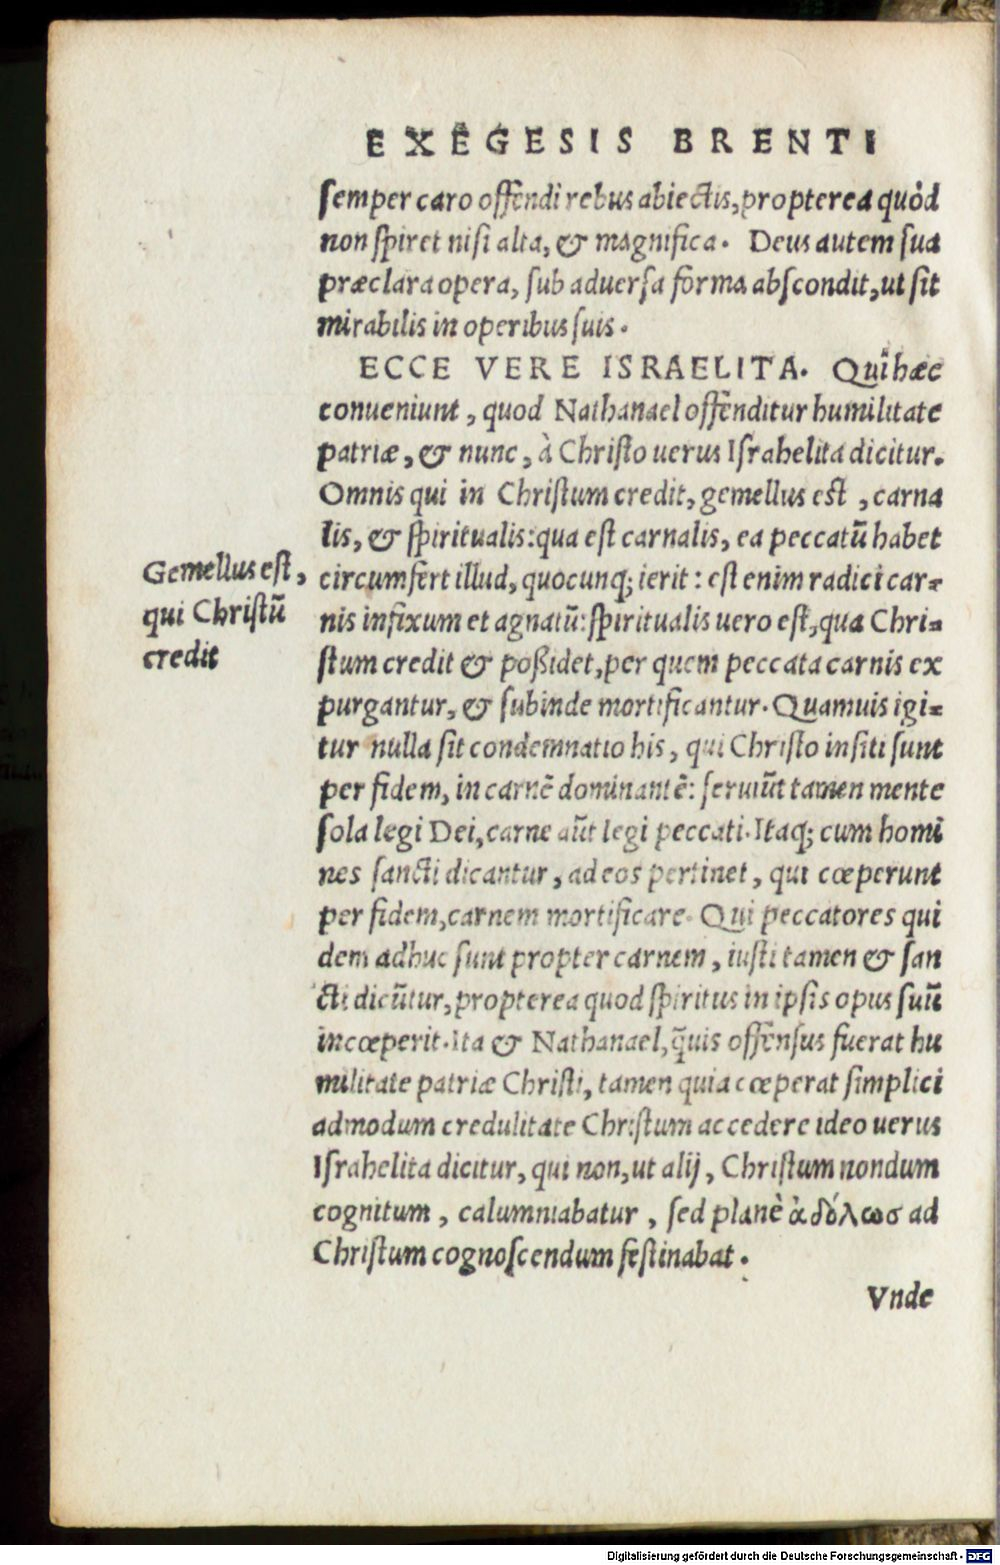 EXEGESIS BRENTI
semper caro offendi rebus abiectis, propterea quòd
non spiret nisi alta, & magnifica. Deus autem sua
præclara opera, sub aduersa forma abscondit, ut sit
mirabilis in operibus suis.
ECCE VERE ISRAELITA. Quî hæc
conueniunt, quod Nathanael offenditur humilitate
patriæ, & nunc, à Christo uerus Israhelita dicitur.
Omnis qui in Christum credit, gemellus est, carna
lis, & spiritualis: qua est carnalis, ea peccatũ habet
Gemellus est,
qui Christũ
credit
circumfert illud, quocunq; ierit: est enim radici car-
nis infixum et agnatũ: spiritualis uero est, qua Chri-
stum credit & poßidet, per quem peccata carnis ex
purgantur, & subinde mortificantur. Quamuis igi-
tur nulla sit condemnatio his, qui Christo insiti sunt
per fidem, in carnẽ dominantẽ: seruiũt tamen mente
sola legi Dei, carne aũt legi peccati. Itaq; cum homi
nes sancti dicantur, ad eos pertinet, qui cœperunt
per fidem, carnem mortificare. Qui peccatores qui
dem adhuc sunt propter carnem, iusti tamen & san
cti dicũtur, propterea quod spiritus in ipsis opus suũ
incœperit. Ita & Nathanael, q̃uis offensus fuerat hu
militate patriæ Christi, tamen quia cœperat simplici
admodum credulitate Christum accedere ideo uerus
Israhelita dicitur, qui non, ut alij, Christum nondum
cognitum, calumniabatur, sed planè ἀδόλωσ ad
Christum cognoscendum festinabat.
Vnde
Digitalisierung gefördert durch die Deutsche Forschungsgemeinschaft - DFG